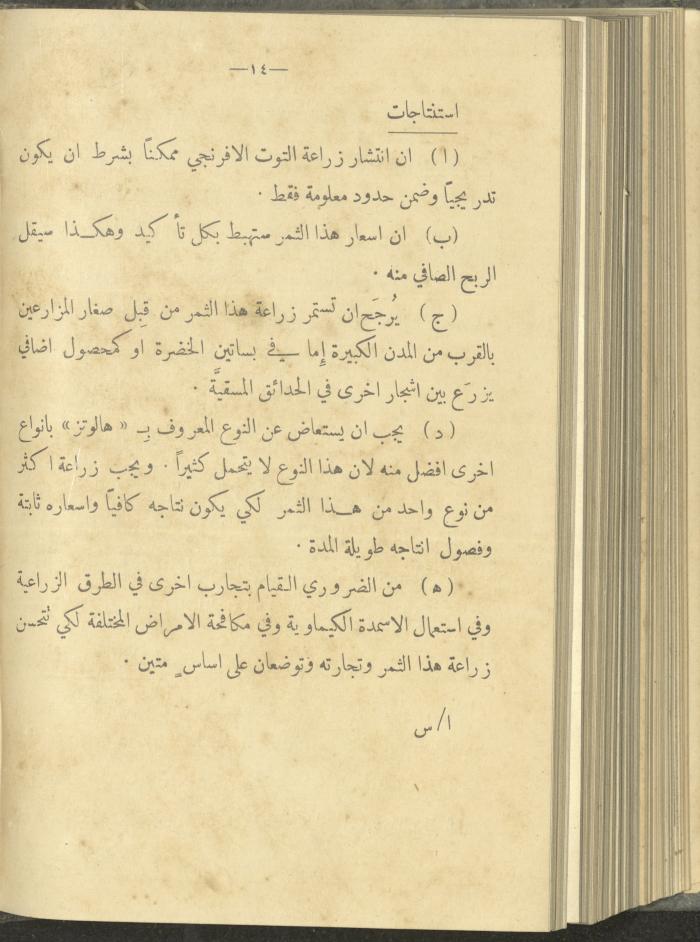 —١٤—
استنتاجات
(ا) ان انتشار زراعة التوت الافرنجي ممكناً بشرط ان يكون
تدريجيّاً وضمن حدود معلومة فقط ·
(ب) ان اسعار هذا الثمر ستهبط بكل تأكيد وهكذا سيقل
الربح الصافي منه ·
(ج) يُرجَح ان تستمر زراعة هذا الثمر من قِبل صغار المزارعين
بالقرب من المدن الكبيرة إما في بساتين الخضرة او كمحصول اضافي
يزرَع بين اشجار اخرى في الحدائق المسقيَّة ·
(د) يجب ان يستعاض عن النوع المعروف بـِ « هالوتز » بانواع
اخرى افضل منه لان هذا النوع لا يتحمل كثيراً · ويجب زراعة اكثر
من نوع واحد من هذا الثمر لكي يكون نتاجه كافيّاً واسعاره ثابتة
وفصول انتاجه طويلة المدة ·
(ه) من الضروري القيام بتجارب اخرى في الطرق الزراعية
وفي استعمال الاسمدة الكيماوية وفي مكافحة الامراض المختلفة لكي تتحسن
زراعة هذا الثمر وتجارته وتوضعان على اساسٍ متين ·
ا/س